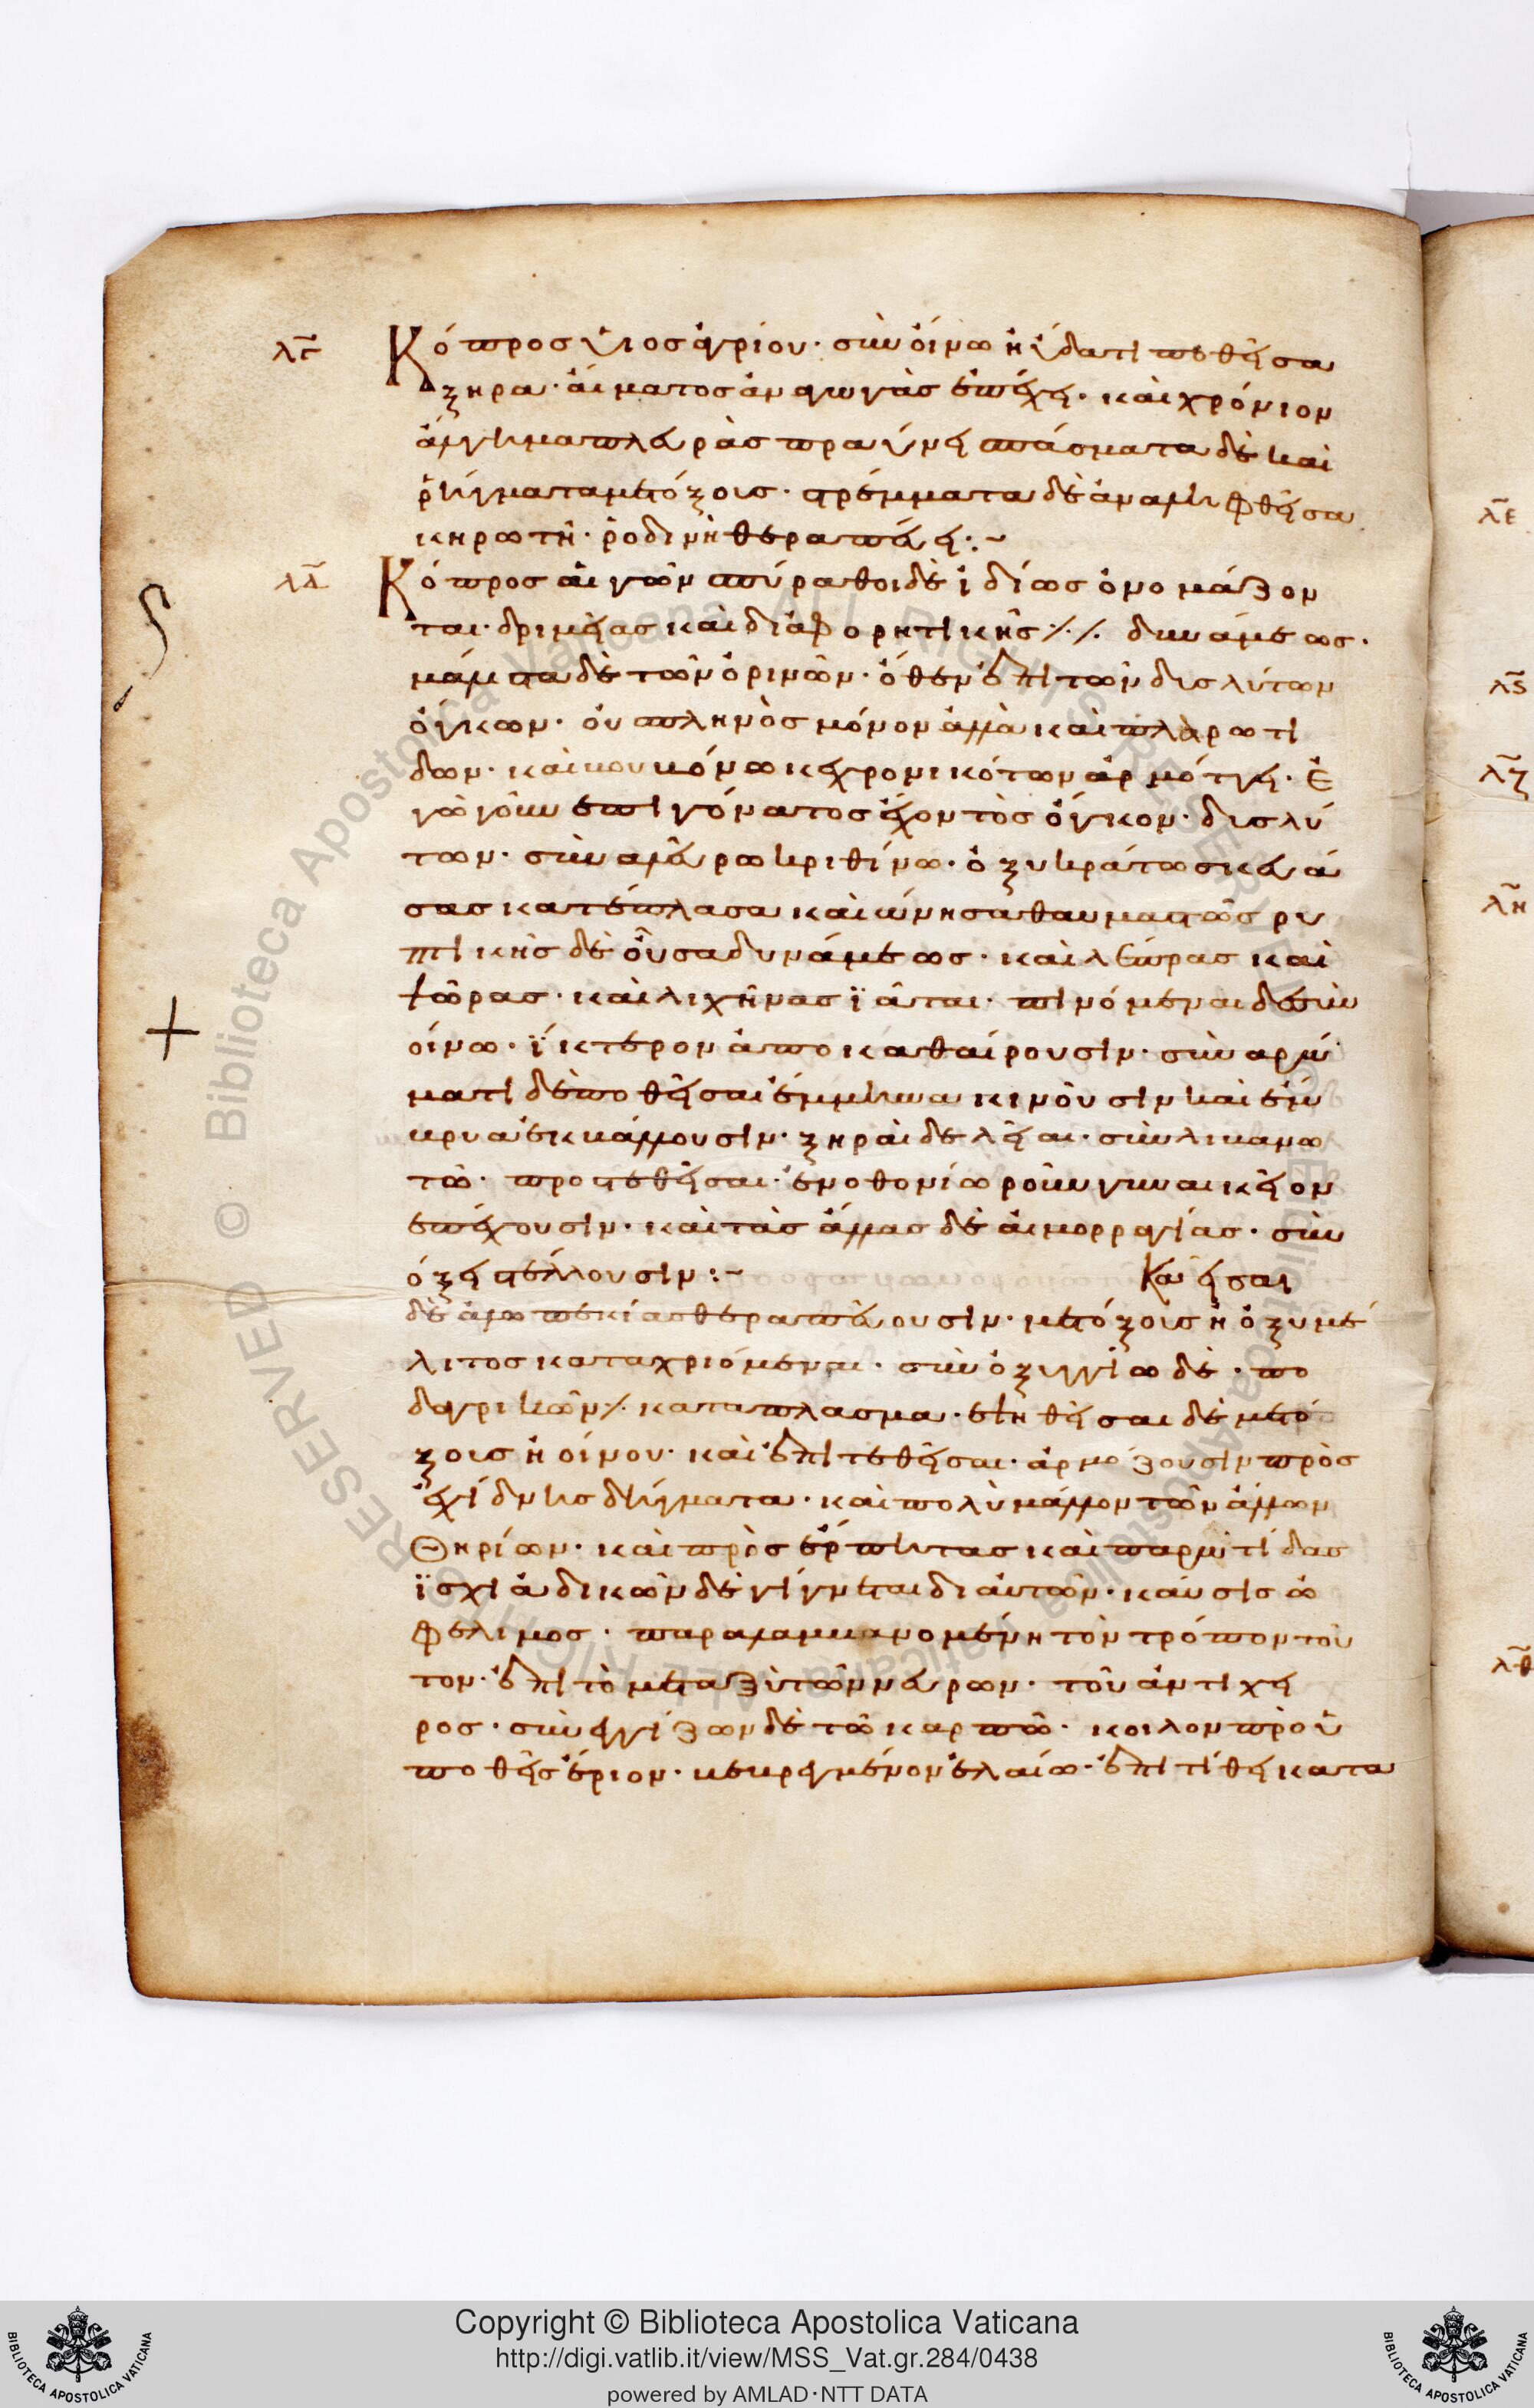 λγ Κόπρος ὑὸς ἀγρίου· σὺν οἴνω ἢ ὕδατι ποθεῖσα
ξηρα· αἵματος ἀναγωγὰς ἐπέχει· καὶ χρόνιον
ἄλγημα πλευρᾶς πραΰνει σπάσματα δὲ καὶ
ῥήγματα μετ ὄξους· στρέμματα δὲ ἀναληφθεῖσα
κηρωτῆ· ῥοδίνη θεραπεύει:~
λδ Κόπρος αἰγῶν σπύραθοι δὲ ἰδίως ὀνομάζον
ται· δριμείας καὶ διαφορητικῆς ⁒ δυνάμεως·
μάλιστα δὲ τῶν ὀρινῶν· ὅθεν ἐπὶ τῶν δυσλύτων
ὄγκων· οὐ σπληνὸς μόνον ἀλλὰ καὶ πλευρωτί
δων· καὶ βουβόνω κεχρονικότων ἁρμόττει· Ἐ
γὼ γοῦν ἐπὶ γόνατος ἔχοντος ὄγκον· δυσλύ
των· σὺν ἀλεύρω κριθίνω· ὀξυκράτω σκευά
σας κατέπλασα καὶ ὤνησα θαυμαστῶς ρυ
πτικῆς δὲ οὖσα δυνάμεως· καὶ λέπρας καὶ
ψώρας· καὶ λιχῆνας ϊᾶται· πινόμεναι δὲ σὺν
οίνω· ΐκτερον ἀποκαθαίρουσιν· σὺν ἀρώ
ματι δὲ ποθεῖσαι ἔμμηνα κινοῦσιν καὶ ἔμ
βρυα ἐκβάλλουσιν· ξηραὶ δὲ λεῖαι· σὺν λιβανω
τῶ· προστεθεῖσαι· ἐν ὀθονίω ροῦν γυναικεῖον
ἐπέχουσιν· καὶ τὰς ἄλλας δὲ αἱμορραγίας· σὺν
όξει στέλλουσιν:~ Καεῖσαι
δὲ ἀλωπεκίας θεραπεύουσιν· μετ όξους ἢ ὀξυμέ
λιτος καταχριόμεναι· σὺν ὀξυγγίω δὲ· πο
δαγρικῶν ⁒ καταπλασμα· ἑψηθεῖσαι δὲ μετ ό
ξους ἢ οίνου· καὶ ἐπιτεθεῖσαι· ἁρμόζουσιν πρὸς
ἐχίδνης δήγματα· καὶ πολὺ μᾶλλον τῶν ἄλλων
Θηρίων· καὶ πρὸς ἕρπητας καὶ παρωτίδας
ϊσχιάδικῶν δὲ γίγνεται δι αὐτῶν· καύσις ὠ
φέλιμος· παραλαμβανομένη τὸν τρόπον τοῦ
τον· ἐπὶ τὸ μεταξὺ τῶν νεύρων· τοῦ ἀντίχει
ρος· συνεγγίζων δὲ τῶ καρπῶ· κοιλον πρὸ ὑ
ποθεὶς έριον· βεβρεγμένον ἐλαίω· ἐπιτίθει κατα
Copyright © Biblioteca Apostolica Vaticana
http://digi.vatlib.it/view/MSS_Vat.gr.284/0438
powered by AMLAD·NTT DATA